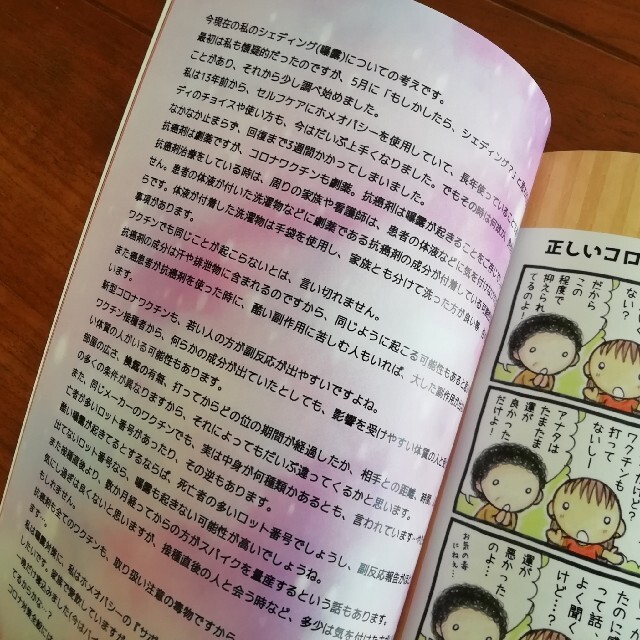 今現在の私のシェディング(曝露)についての考えです。
最初は私も懐疑的だったのですが、5月に「もしかしたら、シェディング?」と思う
ことがあり、それから少し調べ始めました。
私は13年前から、セルフケアにホメオパシーを使用していて、長年使っている
ディのチョイスや使い方も、今はだいぶ上手くなりました。でもその時は何度か
なかなか止まらず、回復まで3週間かかってしまいました。
抗癌剤は劇薬ですが、コロナワクチンも劇薬。抗癌剤は曝露が起きることをご存じ
抗癌剤治療をしている時は、周りの家族や看護師は、患者の体液などに気を付け
せん。患者の体液が付いた洗濯物などに劇薬である抗癌剤の成分が付着している
らです。体液が付着した洗濯物は手袋を使用し、家族とも分けて洗った方が良い等
事項があります。
ワクチンでも同じことが起こらないとは、言い切れません。
抗癌剤の成分は汗や排泄物に含まれるのですから、同じように起こる可能性もあると
また癌患者が抗癌剤を使った時に、酷い副作用に苦しむ人もいれば、大した副作用の
います。
新型コロナワクチンも、若い人の方が副反応が出やすいですよね。
ワクチン接種者から、何らかの成分が出ていたとしても、影響を受けやすい体質の人と
い体質の人がいる可能性もあります。
部屋の広さ、換気の有無、打ってからどの位の期間が経過したか、相手との距離、時間、
の多くの条件が異なりますから、それによってもだいぶ違ってくるかと思います。
また、同じメーカーのワクチンでも、実は中身が何種類かあるとも、言われています…
亡者が多いロット番号があったり、その逆もあります。
酷い曝露が起きてるとするならば、死亡者の多いロット番号でしょうし、副反応報告が
出てないロット番号なら、曝露も起きない可能性が高いでしょうね。
また接種直後より、数か月経ってからの方がスパイクを量産するという話もあります。
気にし過ぎは良くないと思いますが、接種直後の人と会う時など、多少は気を付けた方が
もしれません。
抗癌剤も全てのワクチンも、取り扱い注意の毒物ですから
ます。
私は曝露対策に、私はホメオパシーの『サポ
したいです。家族で実験していますが
正しいコロ
ない?
だから
この
程度で
抑えられ
てるのよ!
ワクチン
打って
ないしー
アナタは
たまたま
運が
良かった
だけよ!
でも
たのに
って話
よく聞く
けど…?
運が
悪かった
のよ…
お気の毒
にねぇ…